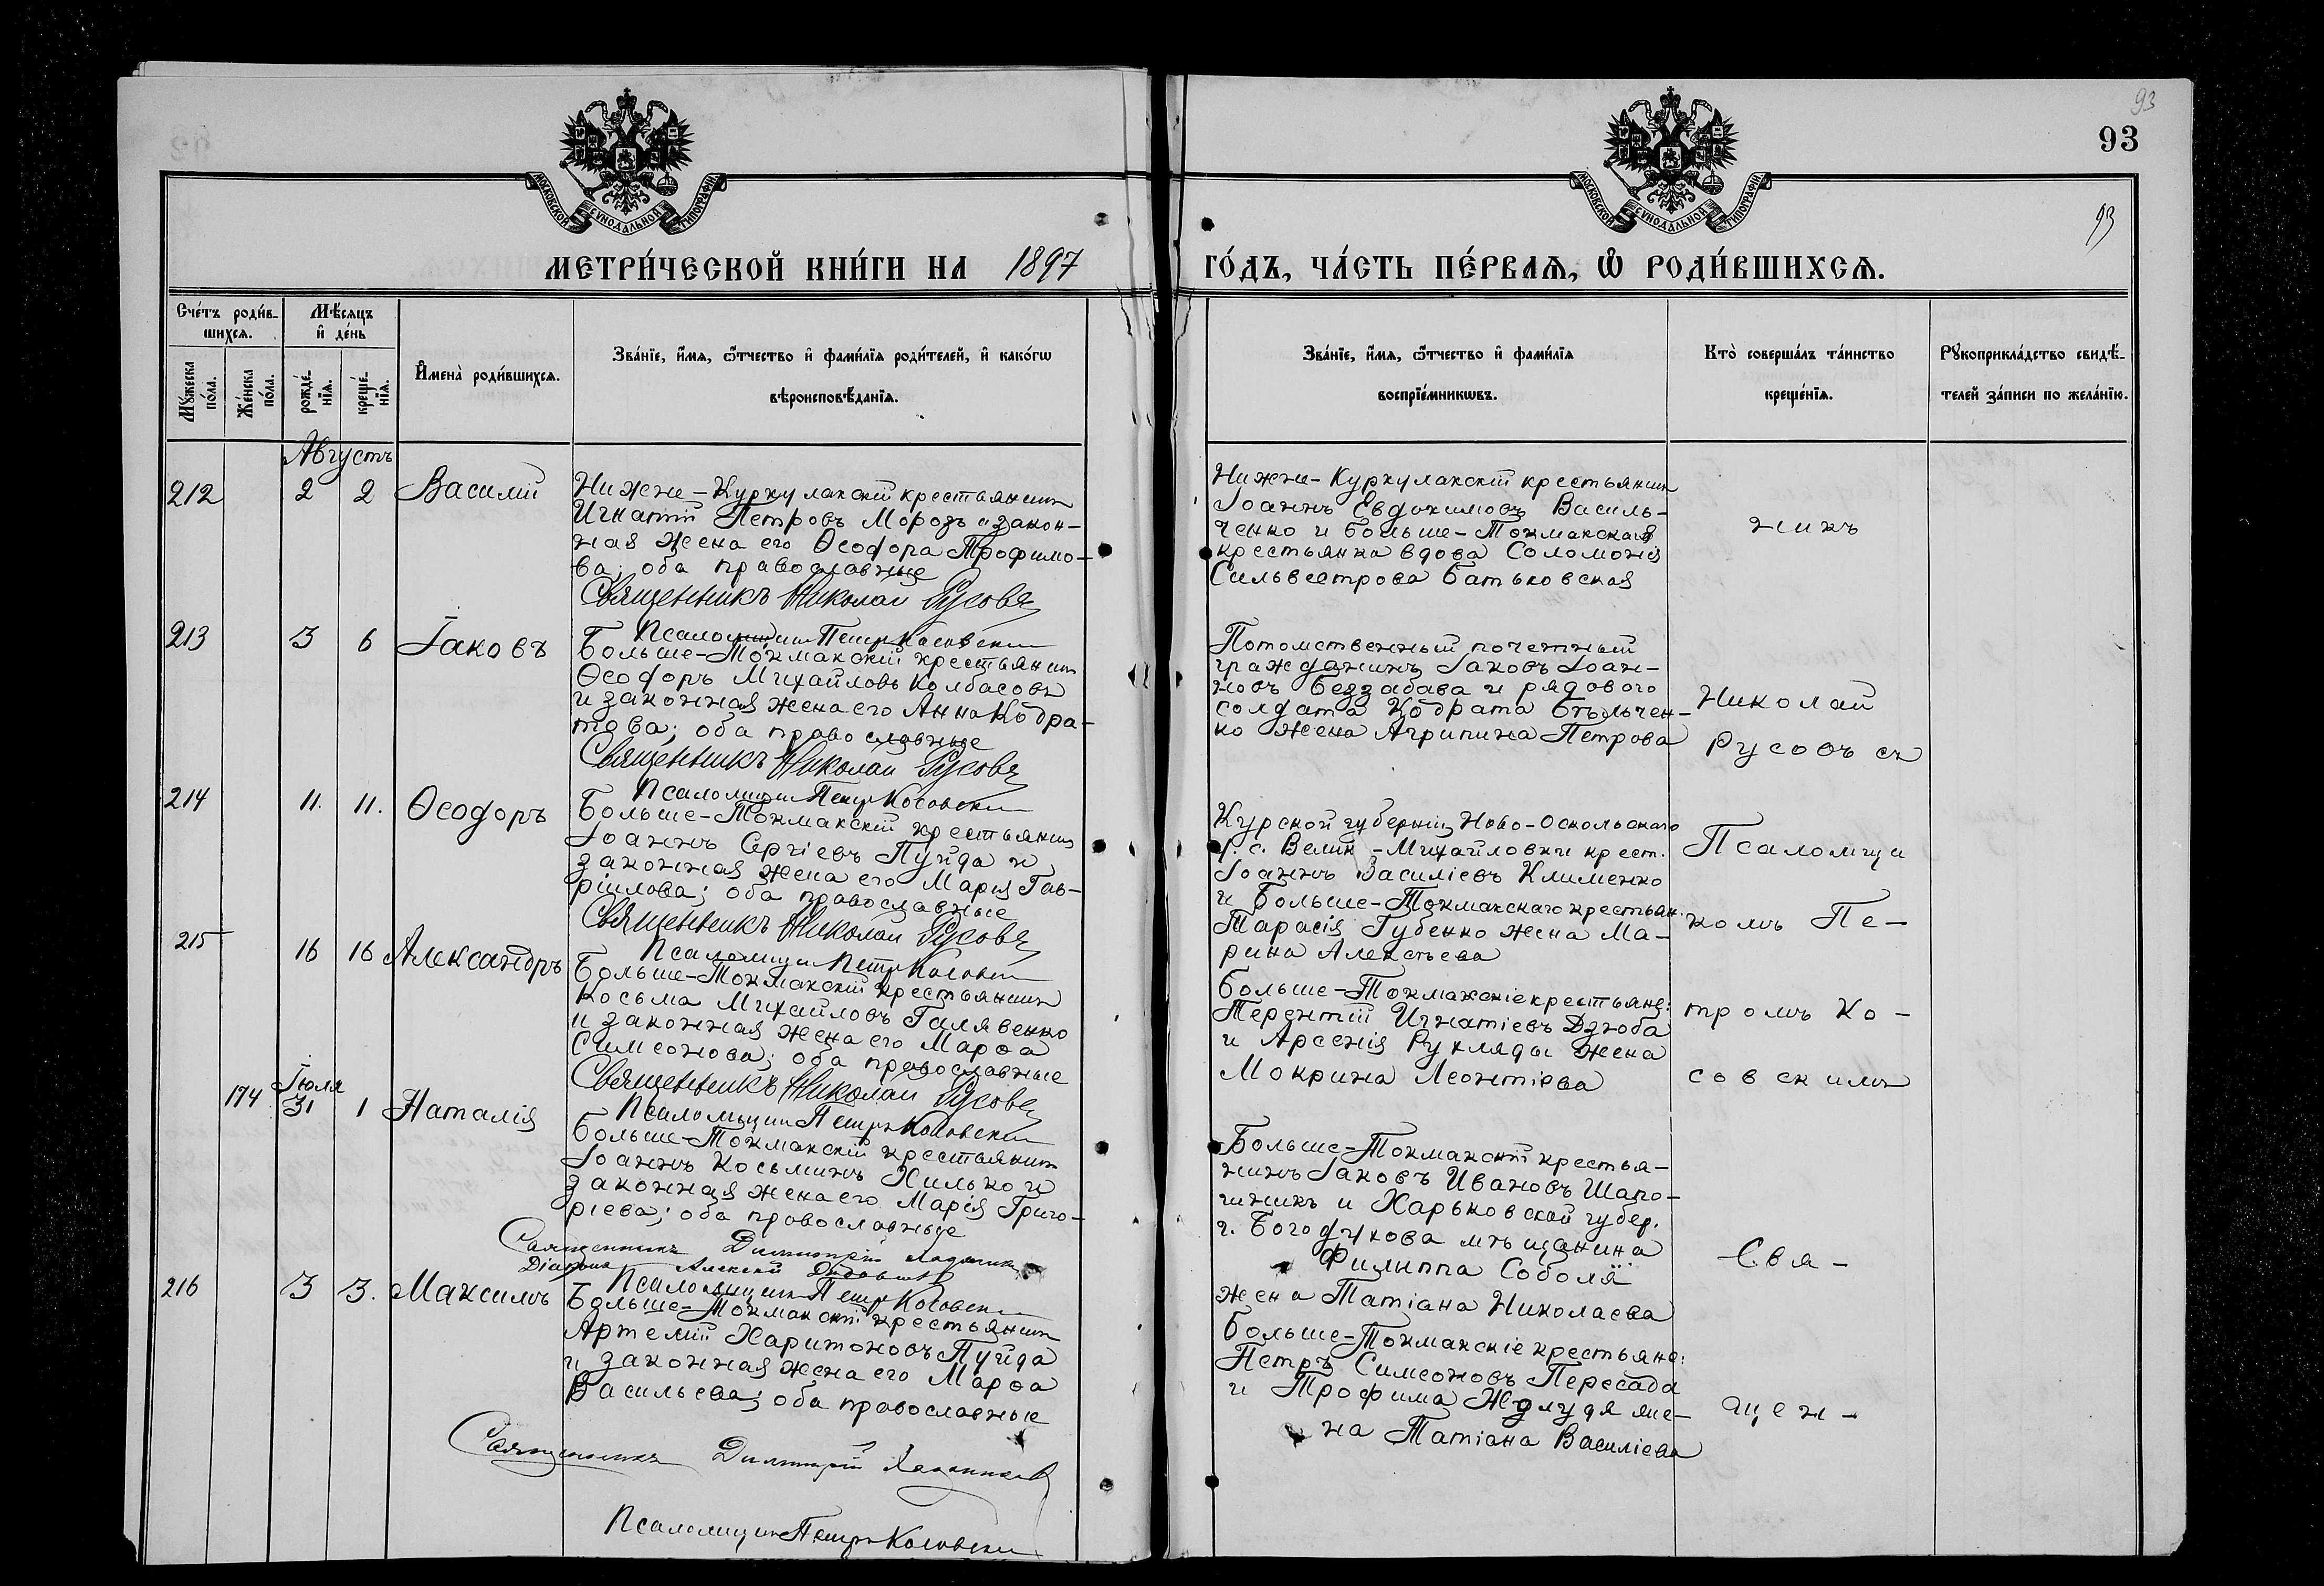 93
93
МОСКОВСКОЙ СѴНОДАЛЬНОЙ ТИПОГРАФІИ
МОСКОВСКОЙ СѴНОДАЛЬНОЙ ТИПОГРАФІИ
93
МЕТРИ́ЧЕСКОЙ КНИ́ГИ НА 1897 ГО́ДЪ, ЧА́СТЬ ПЕ́РВАѦ, Ѽ РОДИ́ВШИХСѦ.
Счéтъ роди́в-
шихсѧ.
Мѣ́сяцъ
и҆ дéнь
Мꙋ́жеска
по́ла.
Же́нска
по́ла.
рождé-
нїѧ.
крещé-
нїѧ.
И҆мена̀ роди́вшихсѧ.
Зва́нїе, и҆́мѧ, ѻ҆́тчество и҆ фами́лїѧ роди́телей, и҆ како́гѡ
вѣроисповѣ́данїѧ.
Зва́нїе, и҆́мѧ, ѻ҆́тчество и҆ фами́лїѧ
воспрїе́мникѡвъ.
Кто̀ соверша́лъ та́инство
креще́нїѧ.
Рꙋкоприкла́дство свидѣ́-
телей за́писи по жела́нїю.
Августъ
212 2 2 Василій
Нижне-Куркулакскій крестьянинъ
Игнатій Петровъ Морозъ и закон-
ная жена его Ѳеодора Трофимо-
ва; оба православные
Священникъ Николай Русовъ
Псаломщикъ Петръ Косовскій
Нижне-Куркулакскій крестьянинъ
Іоаннъ Евдокимовъ Василь-
ченко и Больше-Токмакская
крестьянка вдова Соломонія
Сильвестрова Батьковская
никъ
213 3 6 Іаковъ
Больше-Токмакскій крестьянинъ
Ѳеодоръ Михайловъ Колбасовъ
и законная жена его Анна Кодра-
това; оба православные
Священникъ Николай Русовъ
Псаломщикъ Петръ Косовскій
Потомственный почетный
гражданинъ Іаковъ Іоан-
новъ Беззабава и рядового
солдата Кодрата Стольчен-
ко жена Агрипина Петрова
Николай
Русовъ съ
214 11. 11. Ѳеодоръ
Больше-Токмакскій крестьянинъ
Іоаннъ Сергіевъ Пуйда и
законная жена его Марія Гав-
ріилова; оба православные
Священникъ Николай Русовъ
Псаломщикъ Петръ Косовскій
Курской губерніи Ново-Оскольскаго
у. с. Велик-Михайловки крест.
Іоаннъ Василіевъ Клименко
и Больше-Токмакскаго крестьян.
Тарасія Губенко жена Ма-
рина Алексѣева
Псаломщи
комъ Пе-
215 16 16 Александръ
Больше-Токмакскій крестьянинъ
Косьма Михайловъ Галявенко
и законная жена его Марѳа
Симеонова; оба православные
Священникъ Николай Русовъ
Псаломщикъ Петръ Косовскій
Больше-Токмакскіе крестьяне:
Терентій Игнатіевъ Дзюба
и Арсенія Рухляды жена
Мокрина Леонтіева
тромъ Ко-
совскимъ
Іюля
174 31 1 Наталія
Больше-Токмакскій крестьянинъ
Іоаннъ Косьминъ Хилько и
законная жена его Марія Григо-
ріева; оба православные
Священникъ Димитрій
Діаконъ Алексій
Псаломщикъ Петръ Косовскій
Больше-Токмакскій крестья-
нинъ Іаковъ Ивановъ Шапо-
шникъ и Харьковской губер.
г. Богодухова мѣщанина
Филиппа Соболя
жена Татіана Николаева
Свя-
216 3 3. Максимъ
Больше-Токмакскій крестьянинъ
Артемій Харитоновъ Пуйда
и законная жена его Марѳа
Васильева; оба православные
Священникъ Димитрій
Псаломщикъ Петръ Косовскій
Больше-Токмакскіе крестьяне:
Петръ Симеоновъ Пересада
и Трофима же-
на Татіана Василіева
щен-